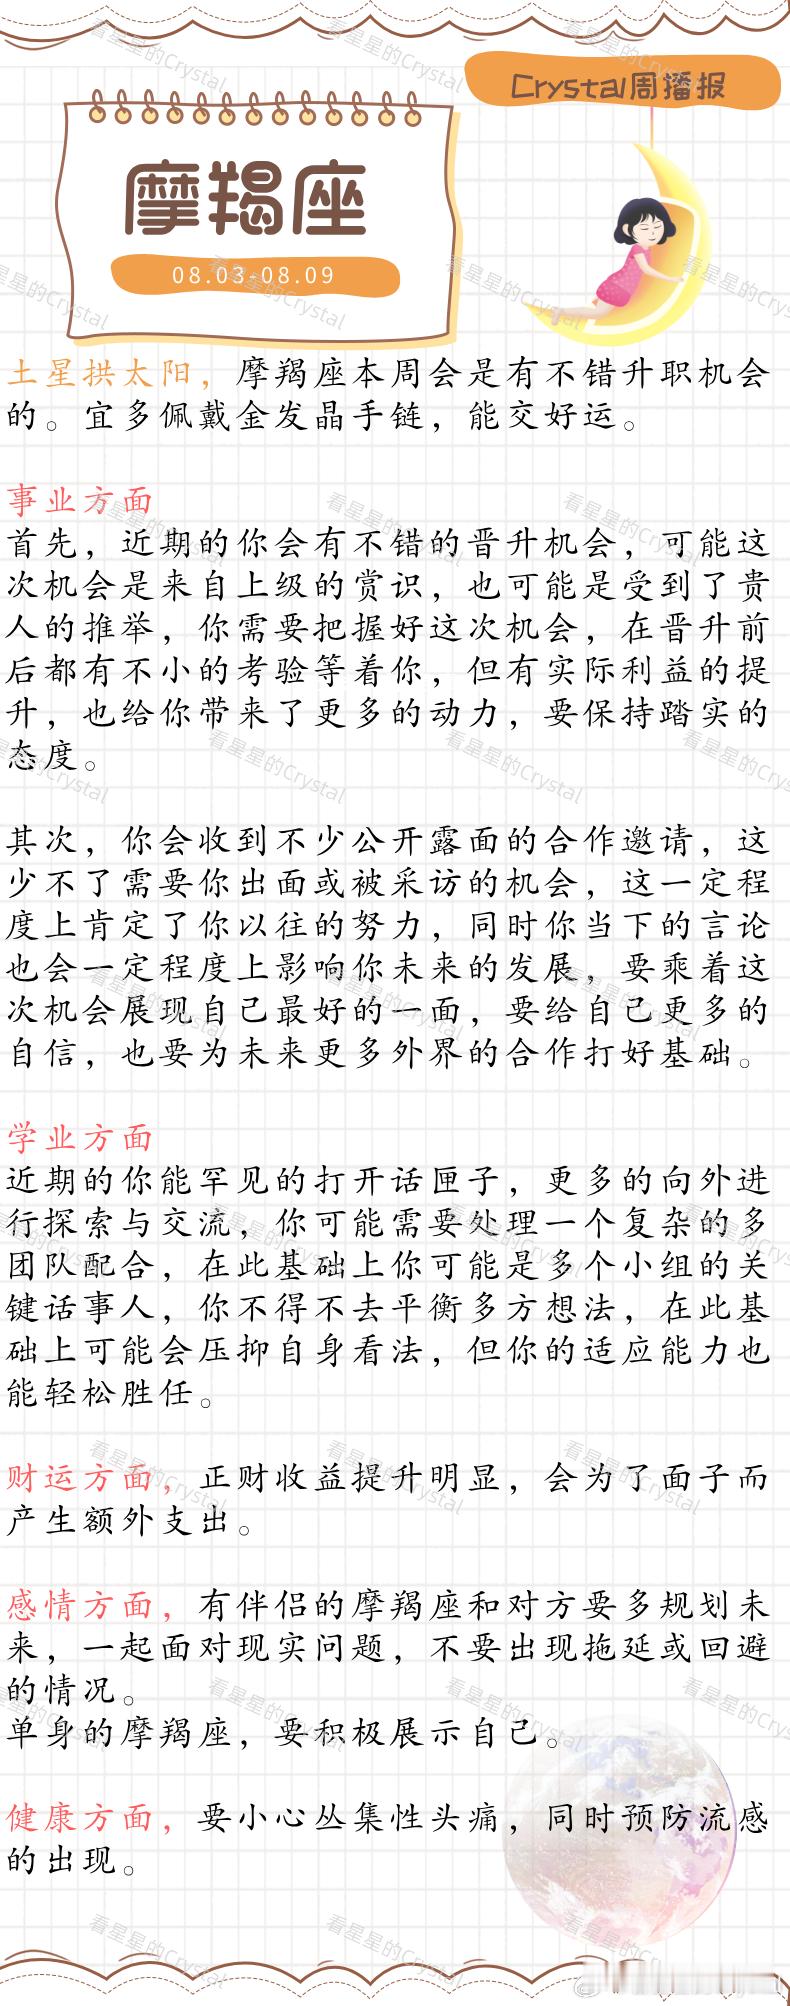 Crystal周播报
摩羯座
08.03-08.09
土星拱太阳，摩羯座本周会是有不错升职机会
的。宜多佩戴金发晶手链，能交好运。
事业方面
首先，近期的你会有不错的晋升机会，可能这
次机会是来自上级的赏识，也可能是受到了贵
人的推举，你需要把握好这次机会，在晋升前
后都有不小的考验等着你，但有实际利益的提
升，也给你带来了更多的动力，要保持踏实的
态度。
其次，你会收到不少公开露面的合作邀请，这
少不了需要你出面或被采访的机会，这一定程
度上肯定了你以往的努力，同时你当下的言论
也会一定程度上影响你未来的发展，要乘着这
次机会展现自己最好的一面，要给自己更多的
自信，也要为未来更多外界的合作打好基础。
学业方面
近期的你能罕见的打开话匣子，更多的向外进
行探索与交流，你可能需要处理一个复杂的多
团队配合，在此基础上你可能是多个小组的关
键话事人，你不得不去平衡多方想法，在此基
础上可能会压抑自身看法，但你的适应能力也
能轻松胜任。
财运方面，正财收益提升明显，会为了面子而
产生额外支出。
感情方面，有伴侣的摩羯座和对方要多规划未
来，一起面对现实问题，不要出现拖延或回避
的情况。
单身的摩羯座，要积极展示自己。
健康方面，要小心丛集性头痛，同时预防流感
的出现。
看星星的Crystal